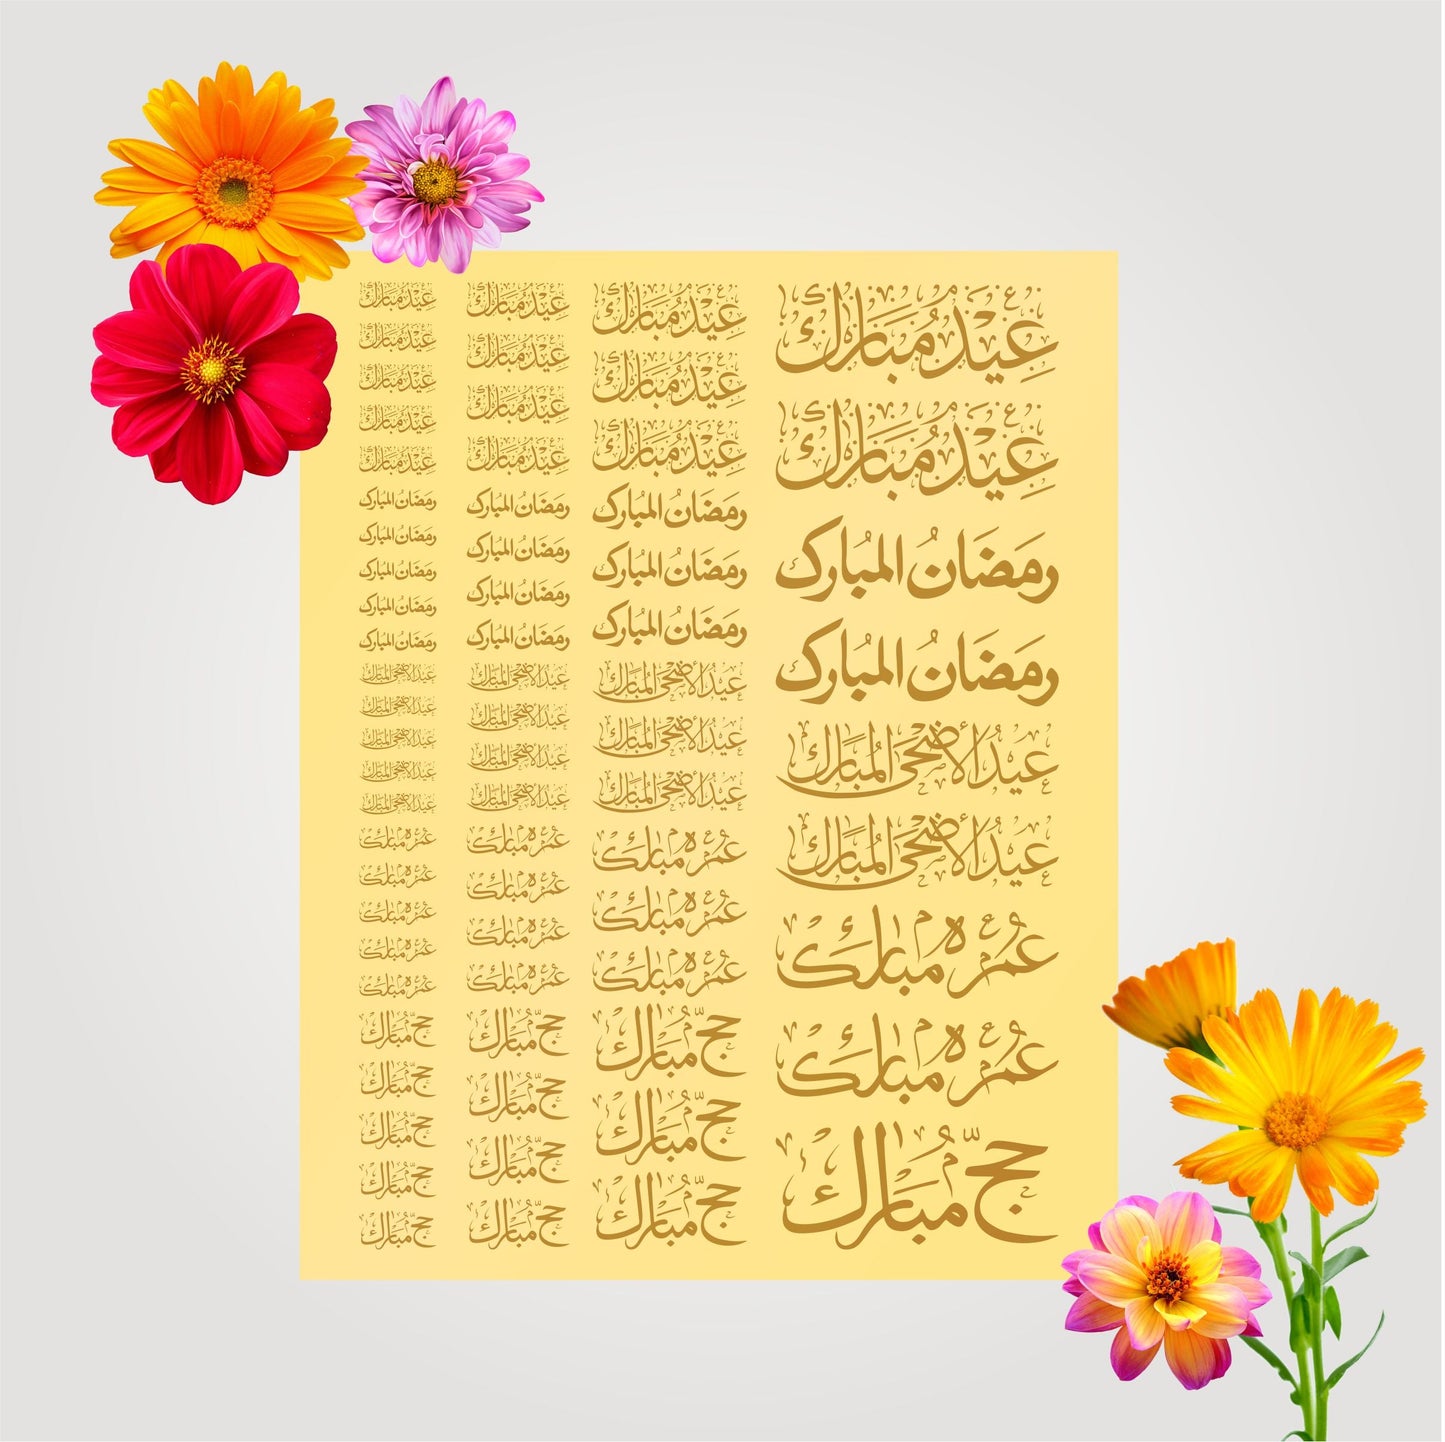 عيد مبارك
عيد مبارك
رمَضَانُ المُبارك
رمَضَانُ المُبارك
عيد الأضحى المبارك
عيد الأضحى المبارك
عمره مبارك
عمره مبارك
حج مبارك
عيد مبارك
عيد مبارك
عيد مبارك
رمَضَانُ المُبارك
رمَضَانُ المُبارك
رمَضَانُ المُبارك
عيد الأضحى المبارك
عيد الأضحى المبارك
عيد الأضحى المبارك
عمره مبارك
عمره مبارك
عمره مبارك
حج مبارك
حج مبارك
حج مبارك
عيد مبارك
عيد مبارك
عيد مبارك
عيد مبارك
رمَضَانُ المُبارك
رمَضَانُ المُبارك
رمَضَانُ المُبارك
رمَضَانُ المُبارك
عيد الأضحى المبارك
عيد الأضحى المبارك
عيد الأضحى المبارك
عيد الأضحى المبارك
عمره مبارك
عمره مبارك
عمره مبارك
عمره مبارك
حج مبارك
حج مبارك
حج مبارك
حج مبارك
عيد مبارك
عيد مبارك
عيد مبارك
عيد مبارك
عيد مبارك
رمَضَانُ المُبارك
رمَضَانُ المُبارك
رمَضَانُ المُبارك
رمَضَانُ المُبارك
رمَضَانُ المُبارك
عيد الأضحى المبارك
عيد الأضحى المبارك
عيد الأضحى المبارك
عيد الأضحى المبارك
عيد الأضحى المبارك
عمره مبارك
عمره مبارك
عمره مبارك
عمره مبارك
عمره مبارك
حج مبارك
حج مبارك
حج مبارك
حج مبارك
حج مبارك